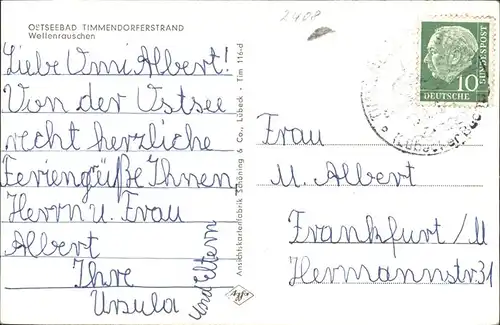 OSTSEEBAD TIMMENDORFERSTRAND
Wellenrauschen
2408
Liebe Omi Albert!
Von der Ostsee
recht herzliche
Feriengrüße Ihnen,
Herrn u. Frau
Albert
Ihre
Ursula
und Eltern
Ansichtskartenfabrik Schöning & Co., Lübeck · Tim 116-d
10
DEUTSCHE
BUNDESPOST
Frau
M. Albert
Frankfurt/M
Hermannstr 31